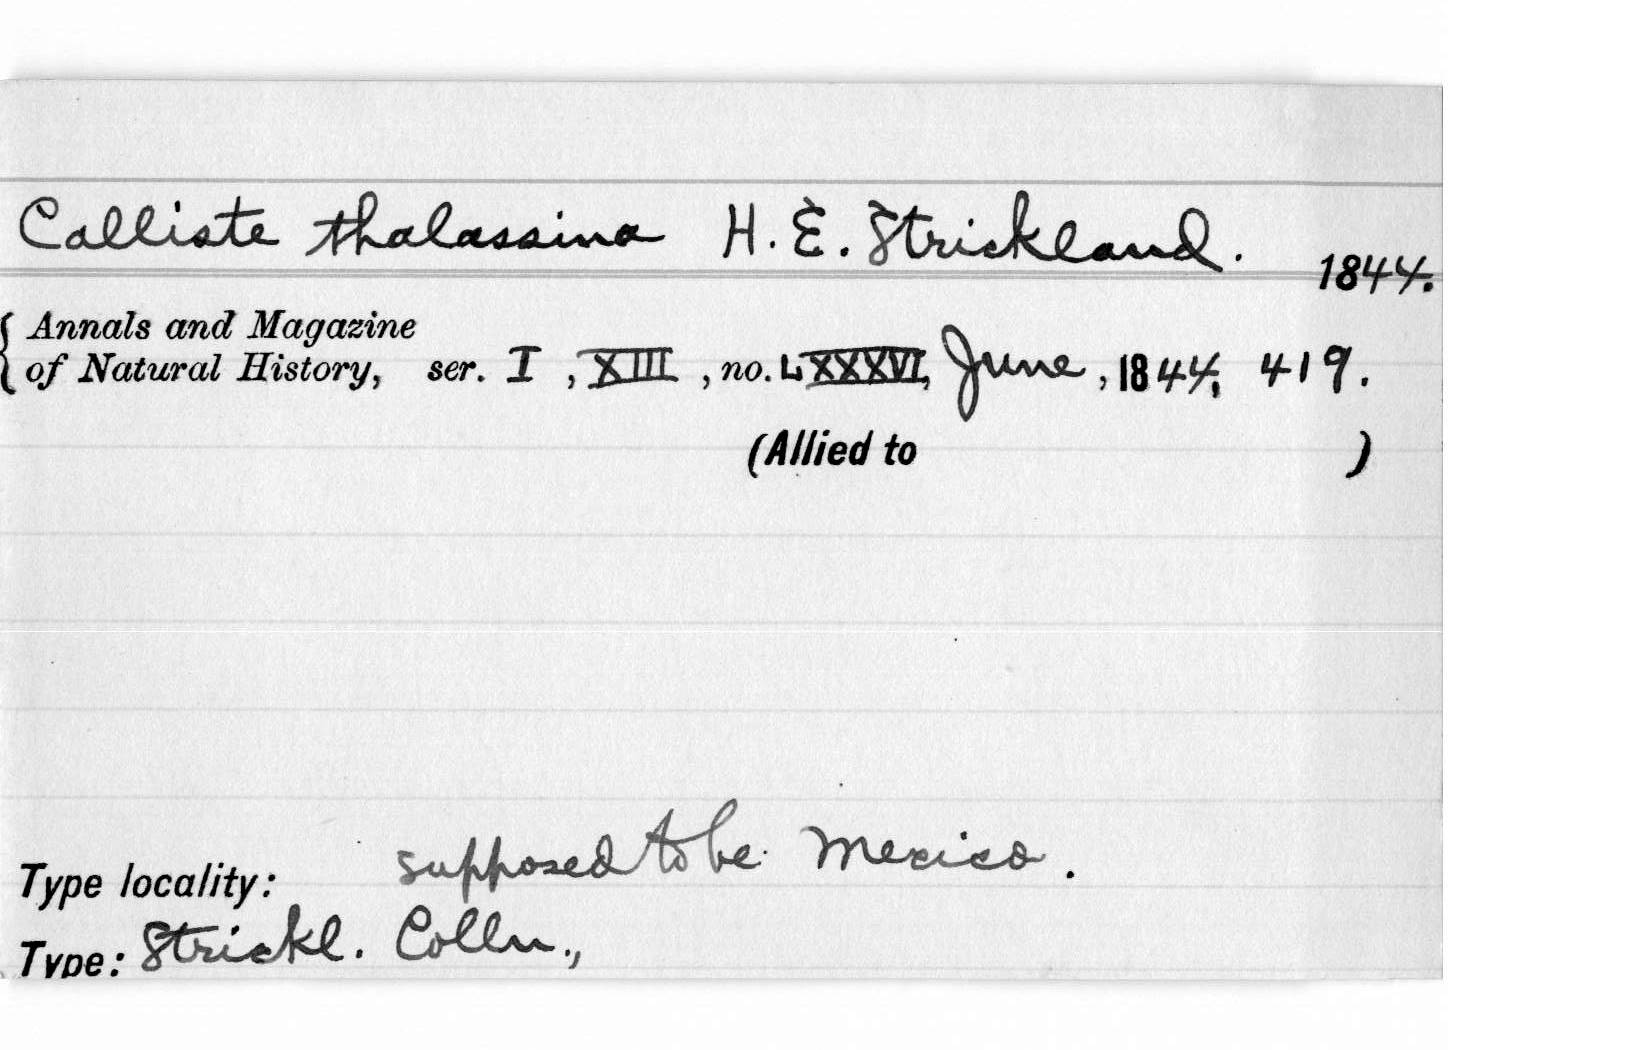 Calliste thalassina H. E. Strickland. 1844.
{ Annals and Magazine
of Natural History, ser. I, XIII, no. LXXXVI, June, 1844, 419.
(Allied to )
Type locality: supposed to be Mexico.
Type: Strickl. Colln.,